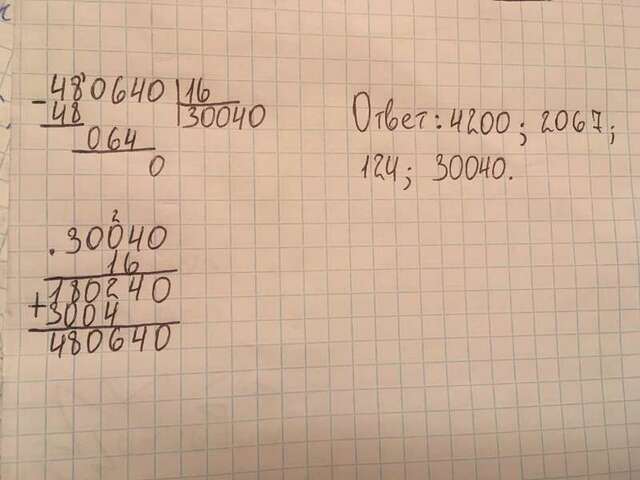 480640 16
- 48 30040
064
0
. 30040
2
16
180240
+ 3004
480640
Ответ: 4200; 2067;
124; 30040.